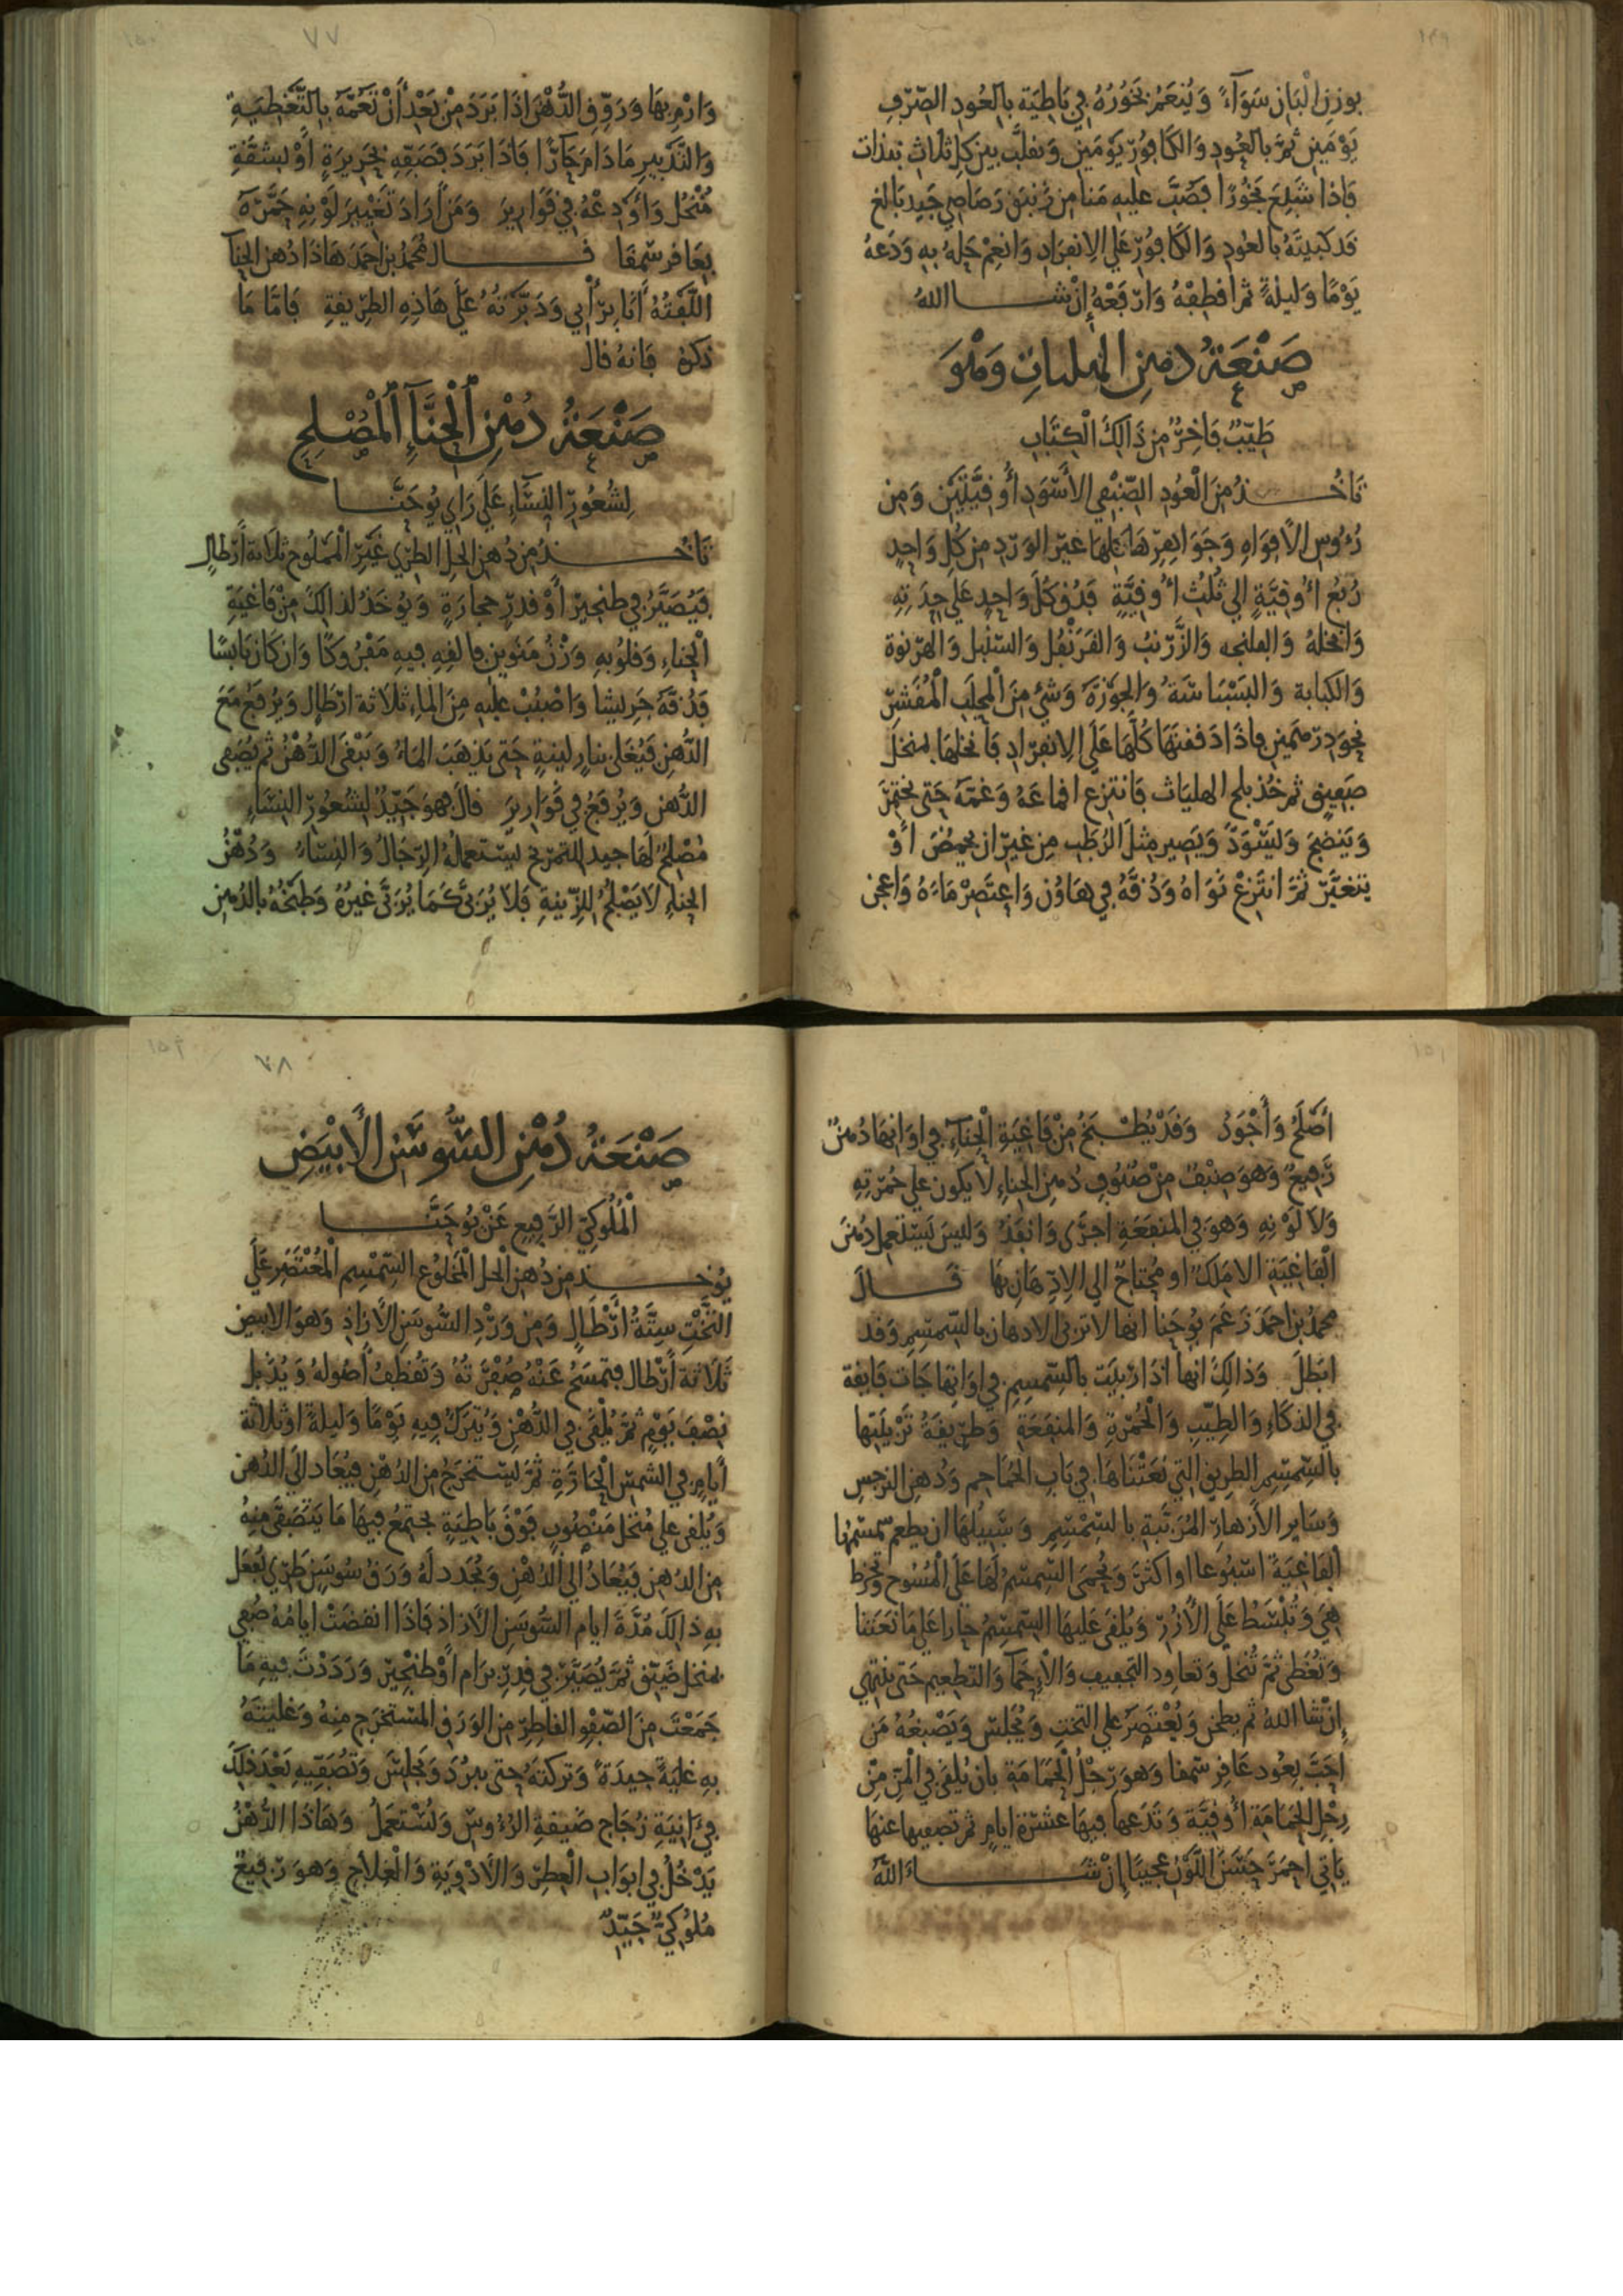 ١٤٩
بوزن البان سَوَآءً وَيُنعَمُ بَخُورُهُ فِي بَاطِيَة بالعُودِ الصِّرفِ
يَوْمَينِ ثُمَّ بالعُودِ وَالكَافُورِ يَوْمَينِ وَيقلَّب بين كل ثلاث
فَاذا شَبِعَ بَخُورًا فَصُبَّ عليهِ مَنا مِن زَنبَق رَصَاصِي جَيد بَالغ
قد بالعُودِ وَالكَافُورِ عَلَي الِانفِرَادِ وَانعِمْ بهِ وَدَعهُ
يَوْمًا وَليلةً ثم اقطِفْهُ وَارْفَعْهُ إِنْ شا اللهُ
صَنْعَةُ دهنِ وَهْوَ
طِيبٌ فَاخِرٌ مِن ذَالِكَ الْكِتَابِ
تَاخُذُ مِنَ الْعُودِ الصَّنْفِي الأَسْوَدِ أُوقِيَّتَيْن وَمِن
رُءُوسِ الأَفْوَاهِ وَجَوَاهِرِهَا كلهَا غَيْرَ الوَرْدِ مِن كُلِ وَاحِدٍ
رُبُع أُوقِيَّةٍ الي ثُلُثِ أُوقِيَّةٍ فَدُق كُلَّ وَاحِدٍ عَلَي حِدَتِهِ
وَانخلهُ وَالفلنجه وَالزَّرْنب وَالقَرَنْفُل وَالسّنْبل وَالهَرنوة
وَالكبابة وَالبَسْبَاسَةُ وَالجوْزَةُ وَشَيْ مِنَ الْمحلَبِ الْمُقَشَّرِ
نحوَ دِرْهَمَينِ فاذَا دَقَقتَهَا كُلَّهَا عَلَي الِانفِرَادِ فَانخلهَا بمنخل
صَفِيقٍ ثم خُذ بلح الهليَاث فَانتزع اقمَاعَهُ وَغمَّهُ حَتي يختَمِرَ
وَيَنضَجَ وَيَسْوَدَّ وَيَصِيرَ مِثلَ الرُطَبِ مِن غيرِ ان يحمُضَ أَوْ
يتغيَّر ثُمَّ انتَزِعْ نَوَاهُ وَدُقَّهُ فِي هَاوُن وَاعتَصِرْ مَاءَهُ وَاعجن
١٥٠
٧٧
وَارْمِ بهَا وَرَوِّقِ الدُّهْنَ اذَا بَرَدَ مِنْ بَعْدِ أَنْ تَعُمَّهُ بِالتَّغْطِيَةِ
وَالتَّدْبِيرِ مَا دَامَ حَارًّا فَاذَا بَرَدَ فَصَفِّهِ بِحَرِيرَةٍ أَوْ بشقَّةِ
مُنْخُل وَأَوْدِعْهُ فِي قَوَارِيرَ وَمَن أَرَادَ تَغْيِيرَ لَوْنِهِ حَمَّرَهُ
بِعَاقر شَمقا قال مُحَمَّدُ بن احمَدَ هَاذَا دُهن الحِنآ
أَلَّفْتُهُ أَنَا بِرَأْيِي وَدَبَّرْتُهُ عَلَي هَاذِهِ الطَرِيقةِ فَامَّا مَا
ذَكرهُ فَانهُ قال
صَنْعَةُ دُهْنِ اَلْحِنَّآءِ اَلْمُصْلِحِ
لِشُعُورِ النِسَّآءِ عَلَي رَاي يُوحَنَّا
تَاخُذُ مِن دُهنِ الحَلِّ الطَرِي غَيْرِ الْمَملُوحِ ثَلَاثة أَرْطالٍ
فَيُصَيَّرُ فِي طنجير أَوْ قِدرٍ حِجَارَةٍ وَيُوخَذُ لذالِكَ مِنْ فَاغِيَةِ
الْحِناءِ وَقلُوبهِ وَزْنُ مَنَوين فالقِهِ فيهِ مَفْرُوكًا وَان كَانَ يَابسًا
فَدُقَّهُ جَرِيشا وَاصْبُبْ عليهِ مِنَ المَاءِ ثلَاثة ارْطَالٍ وَيرفَعُ مَعَ
الدُّهنِ فَيُغلَى بنارٍ لينةٍ حَتي يَذهَبَ المَاءُ وَيَبْقَى الدُّهْنُ ثم يُصَفى
الدُّهن وَيُرفَعُ فِي قَوَاريرَ قَالَ فهوَ جَيِّدٌ لِشُعُورِ النِسَّاءِ
مُصْلِحٌ لَهَا جيد للتمَرخ يَستعملُهُ الرِّجَالُ وَالنِسَاءُ وَدُهْنُ
الحِناءِ لَا يَصْلُحُ للزِينةِ فَلَا يُرَبى كَمَا يُرَبَّى غيرُهُ وَطبخُهُ بالدُهنِ
١٥١
أَصْلَحُ وَأَجْوَدُ وَقَدْ يُطْبَخُ مِنْ فَاغِيَةِ الْحِنَآءِ فِي اوَانِهَا دُهنٌ
رَّفِيعٌ وَهوَ صِنْفٌ مِنْ صُنُوفِ دُهنِ الحِناءِ لَا يَكون علي حُمْرَتِهِ
وَلَا لَوْنِهِ وَهوَ فِي المَنفَعَةِ اجزَى وَانفَذُ وَليسَ يَستعمِل دُهنَ
الْفَاغِيَةِ الا مَلِكٌ او مُحتَاجٌ الي الِادِّهَانِ بهَا قَالَ
محمدُ بن احمَدَ زَعَمَ يُوحَنا انها لا تربى الادهان بالسّمسِمِ وَقد
ابْطَلَ وَذالِكَ انها اذَا رُبِّيَت بالسّمسِمِ فِي اوَانِهَا جَات فَايقة
فِي الذكَاءِ وَالطِيبِ وَالْحُمْرَةِ وَالمنفَعَةِ وَطَرِيقَةُ تَرْبيَتِها
بالسِّمسِمِ الطرِيق التي نَعَتْنَاهَا فِي بَابِ الحُمَاحِم وَدُهنِ النرجسِ
وَسَايرِ الأَزهَارِ المُرَتَّبةِ بالسِّمسِمِ وَسَبِيلُهَا ان يطعم سمسمُهَا
الفَاغِيَةَ اسبُوعا او اكثَرَ وَيُحمَى السِمسِمُ لَهَا عَلَي الْمُسُوحِ وَتخرَط
هِيَ وَتُبْسَطُ عَلَي الأُزُرِ وَيُلقَى عَليهَا السِمسِمُ حَارا عَلَي مَا نَعَتنا
وَتُغَطى ثُمَّ تُنخل وَتعاوِد التجفِيف وَالْإِحْمَآ وَالتطعِيم حَتي ينتهي
إِنْ شَا اللهُ ثم يطحن وَيُعْتَصَرُ علي التختِ وَيُجلَسُ وَيَصْبُغُهُ مَن
احَبَّ بعُود عَاقِر شمقا وَهوَ رِجْلُ الْحَمَامَةِ بان يُلقَى فِي الْمَنِّ مِنْ
رِجْلِ الحَمَامَةِ أُوقِيَّة وَتدَعهَا فِيهَا عشرَة ايامٍ ثم تصَفيها عنها
يَاتي احمَرَ حَسَنَ اللَّوْنِ عَجِيبًا إِنْ شَاءَ اللَّهُ
١٥٢
٧٨
صَنْعَةُ دُهْنِ السُّوسَنِ الأَبْيَضِ
الْمُلُوكِيِّ الرَّفِيعِ عَنْ يُوحَنَّا
يُوخَذُ مِن دُهنِ الْحل الْمَخلُوعِ السِّمْسِمِ الْمُعْتَصَرِ عَلَى
التَّخْتِ سِتَّةُ أَرْطَالٍ وَمِن وَرْدِ السُّوسَنِ الأزَاذِ وَهوَ الابيض
ثَلَاثة أَرْطال فتمسَحُ عَنْهُ صُفْرَتهُ وَتُقطَفُ أُصُولهُ وَيُذَبل
نِصْفَ يَوْمٍ ثُمَّ يُلْقَى فِي الدُّهْنِ وَيُتركُ فِيهِ يَوْمًا وَليلةً او ثلاثة
أَيامٍ فِي الشمسِ الْحَارَّةِ ثُمَّ يُستخرَجُ مِن الدُهْنِ فيُعَاد الَي الدُهن
وَيُلقى علي مُنْخل مَنْصُوبٍ فَوْقَ بَاطِيَةٍ يجتمعُ فيهَا مَا يَتَصَفَّى مِنهُ
مِن الدُهنِ فَيُعَادُ الي الدُهْنِ وَيُجَدد لَهُ وَرَقُ سُوسَنٍ طَرِي يُفعَل
بهِ ذالِكَ مُدَّةَ ايام السُّوسَنِ الأَزاذِ فَاذَا انقضَتْ ايامُهُ صُفي
بمنخل ضَيّق ثُمَّ يُصَيَّرُ فِي قِدرِ بِرَام أَوْ طنجِير وَرَدَدْتَ فِيهِ مَا
جَمَعْتَ مِنَ الصّفْوِ القاطِرِ مِنَ الوَرَقِ المسْتخرَجِ مِنهُ وَغليتَهُ
بهِ غليَةً جيدَةً وَتَرَكتَهُ حَتى يبرُدَ وَيجلسَ وَتُصَفّيهِ بَعْدَ ذلِكَ
فِي ءَانِيَةِ زُجَاج ضَيقةِ الرُؤُوسِ وَيُسْتَعمَلُ وَهَاذَا الدُّهْنُ
يَدْخُلُ فِي ابوَابِ الْعِطرِ وَالأَدْوِيَةِ وَالْعِلَاجِ وَهوَ رَفِيعٌ
مُلُوكِيٌّ جَيِّدٌ